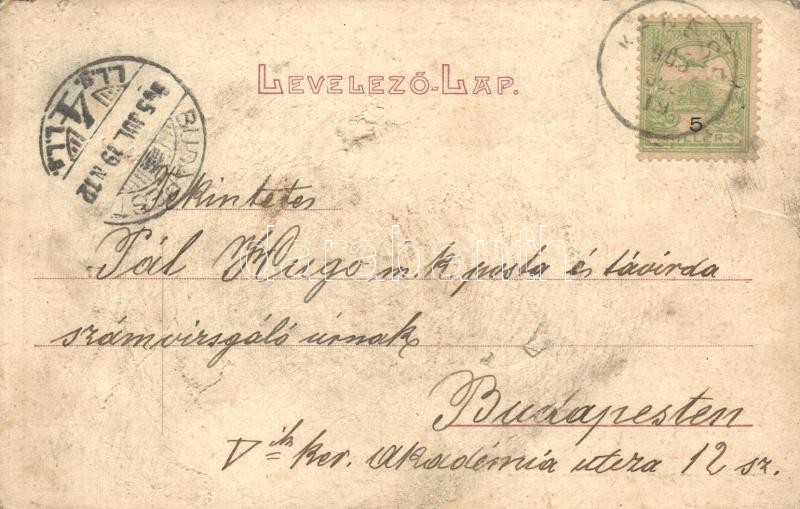 LEVELEZŐ-LAP.
5
BUDAPEST
905 JUL 19 N 12
4
Tekintetes
Pál Hugo m. k. posta és távirda
számvizsgáló úrnak
Budapesten
V ik ker. Akadémia utcza 12 sz.
darabanth